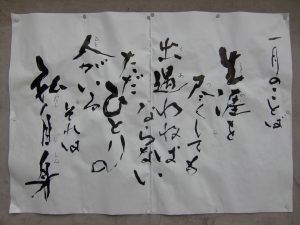 一月のことば
生涯を
尽くしても
出遇わねば
ならない
ただひとりの
人がいる
それは
私自身